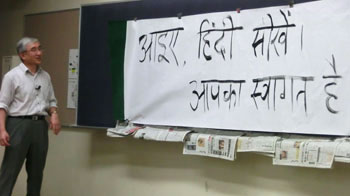 आइए, हिंदी सीखें।
आपका स्वागत है